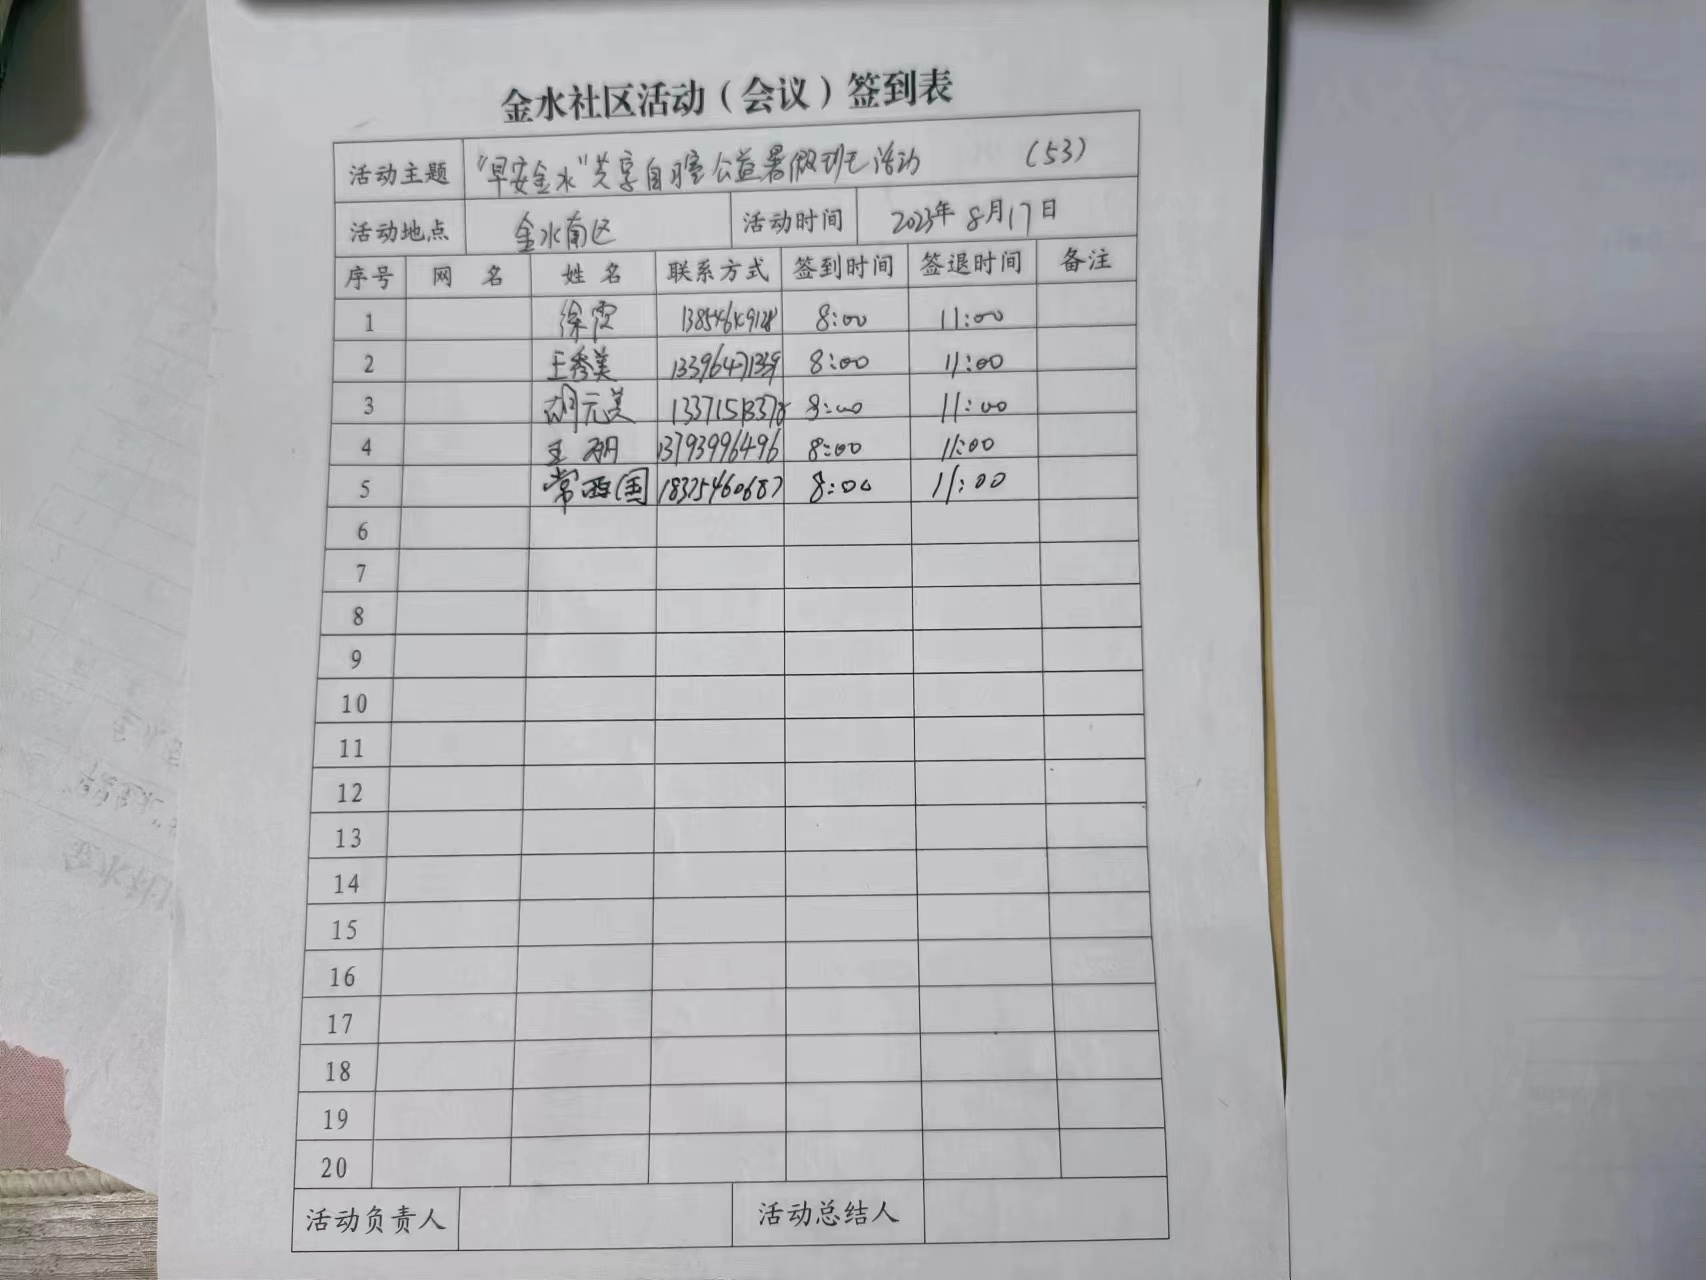 金水社区活动（会议）签到表
活动主题 "早安金水"共享自习室公益暑假班活动 (53)
活动地点 金水南区 活动时间 2023年8月17日
序号 网 名 姓 名 联系方式 签到时间 签退时间 备注
1 徐霞 8:00 11:00
2 王秀美 13396471339 8:00 11:00
3 胡元美 8:00 11:00
4 王 13793996496 8:00 11:00
5 常西国 18325460687 8:00 11:00
6
7
8
9
10
11
12
13
14
15
16
17
18
19
20
活动负责人 活动总结人